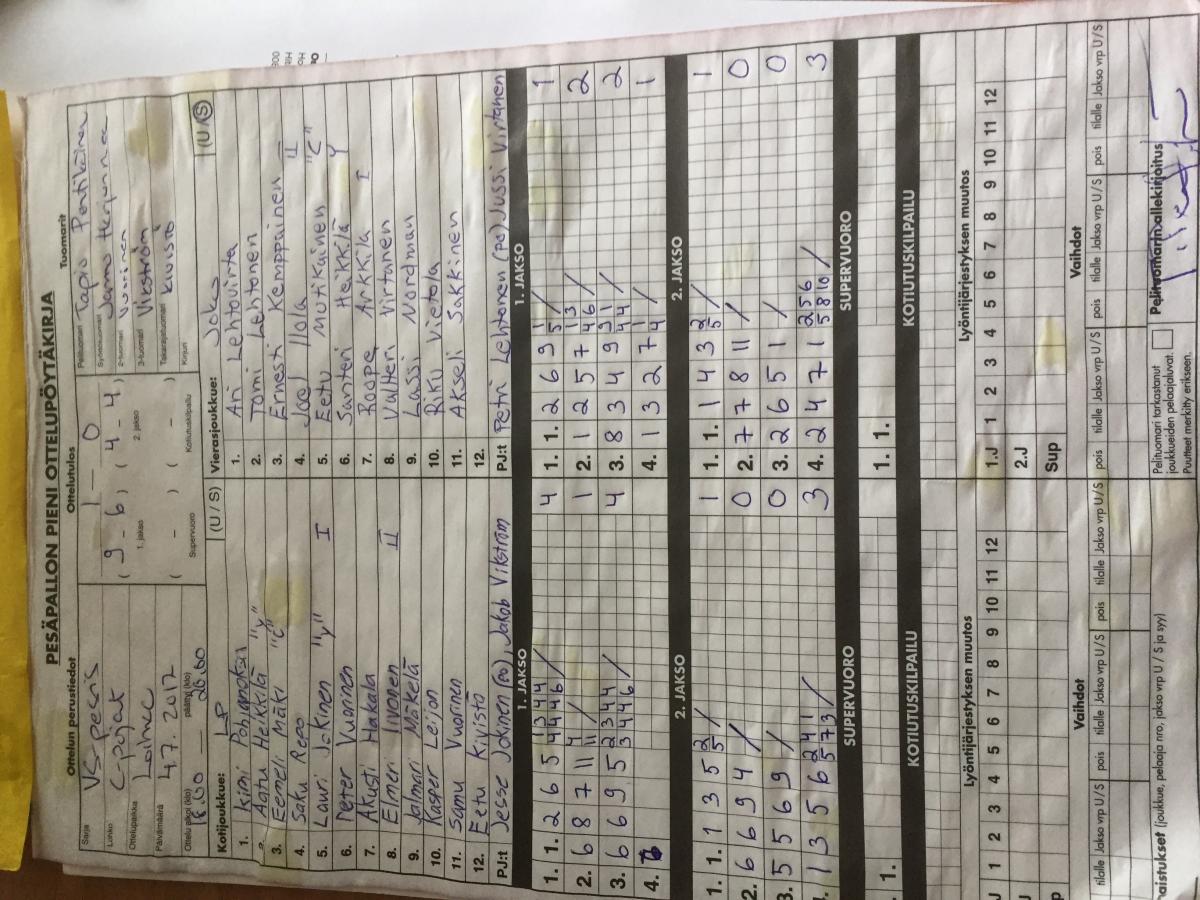 PESÄPALLON PIENI OTTELUPÖYTÄKIRJA
Ottelun perustiedot
Ottelutulos
Tuomarit
Sarja
VS-pesis
Lohko
C-pojat
Ottelupaikka
Loimaa
Päivämäärä
4.7. 2012
Ottelu alkoi (klo)
18.00
päättyi (klo)
20.00
1 - 0
( 9 - 6 ) ( 4 - 4 )
1. jakso
2. jakso
( - ) ( - )
Supervuoro
Kotiutuskilpailu
Pelituomari
Tapio Penttikäinen
Syöttötuomari
Jarmo
2-tuomari
Vuorinen
3-tuomari
Vikström
Takarajatuomari
Kivistö
Kirjuri
Kotijoukkue: LP (U / S)
1. Kimi
2. Aatu Heikkilä "y"
3. Eemeli Mäki "C"
4. Saku Repo
5. Lauri Jokinen "y" I
6. Peter Vuorinen
7. Akusti Hakala
8. Elmeri Iivonen II
9. Jalmari Mäkelä
10. Kasper Leijon
11. Samu Vuorinen
12. Eetu Kivistö
PJ:t Jesse Jokinen (po), Jakob Vikström
Vierasjoukkue: Jokes (U / S)
1. Ari Lehtovirta
2. Tomi Lehtonen
3. Ernesti Kemppainen
4. Joel Ilola II
5. Eetu Mutikainen "C"
6. Santeri Heikkilä Y
7. Roope Arkkila I
8. Valtteri Virtanen
9. Lassi Nordman
10. Riku Vietola
11. Akseli Sakkinen
12.
PJ:t Petri Lehtonen (po) Jussi Virtanen
1. JAKSO
1. 1. 2 6 5 1 3 4 4 / 4 4 4 6 / 4
2. 6 8 7 11 4 / 11 / 1
3. 6 6 9 5 2 3 4 4 / 3 4 4 6 / 4
4.
1. JAKSO
1. 1. 2 6 9 1 / 5 / 1
2. 1 2 5 7 1 3 / 4 6 / 2
3. 8 3 4 9 3 1 / 4 4 / 2
4. 1 3 2 7 1 / 4 / 1
2. JAKSO
1. 1. 1 3 5 2 / 5 / 1
2. 6 6 9 4 / 0
3. 5 5 6 9 / 0
1 3 5 6 2 4 1 / 5 7 3 / 3
2. JAKSO
1. 1. 1 4 3 2 / 5 / 1
2. 7 7 8 11 / 0
3. 2 6 5 1 / 0
4. 2 4 7 1 2 5 6 / 5 8 10 / 3
SUPERVUORO
1.
SUPERVUORO
1. 1.
KOTIUTUSKILPAILU
KOTIUTUSKILPAILU
Lyöntijärjestyksen muutos
J 1 2 3 4 5 6 7 8 9 10 11 12
J
p
Lyöntijärjestyksen muutos
1.J 1 2 3 4 5 6 7 8 9 10 11 12
2.J
Sup
Vaihdot
tilalle Jakso vrp U / S pois tilalle Jakso vrp U / S pois tilalle Jakso vrp U / S
Vaihdot
pois tilalle Jakso vrp U / S pois tilalle Jakso vrp U / S pois tilalle Jakso vrp U / S
aistukset (joukkue, pelaaja nro, jakso vrp U / S ja syy)
Pelituomari tarkastanut
joukkueiden pelaajaluvat.
Puutteet merkitty erikseen.
Pelituomarin allekirjoitus